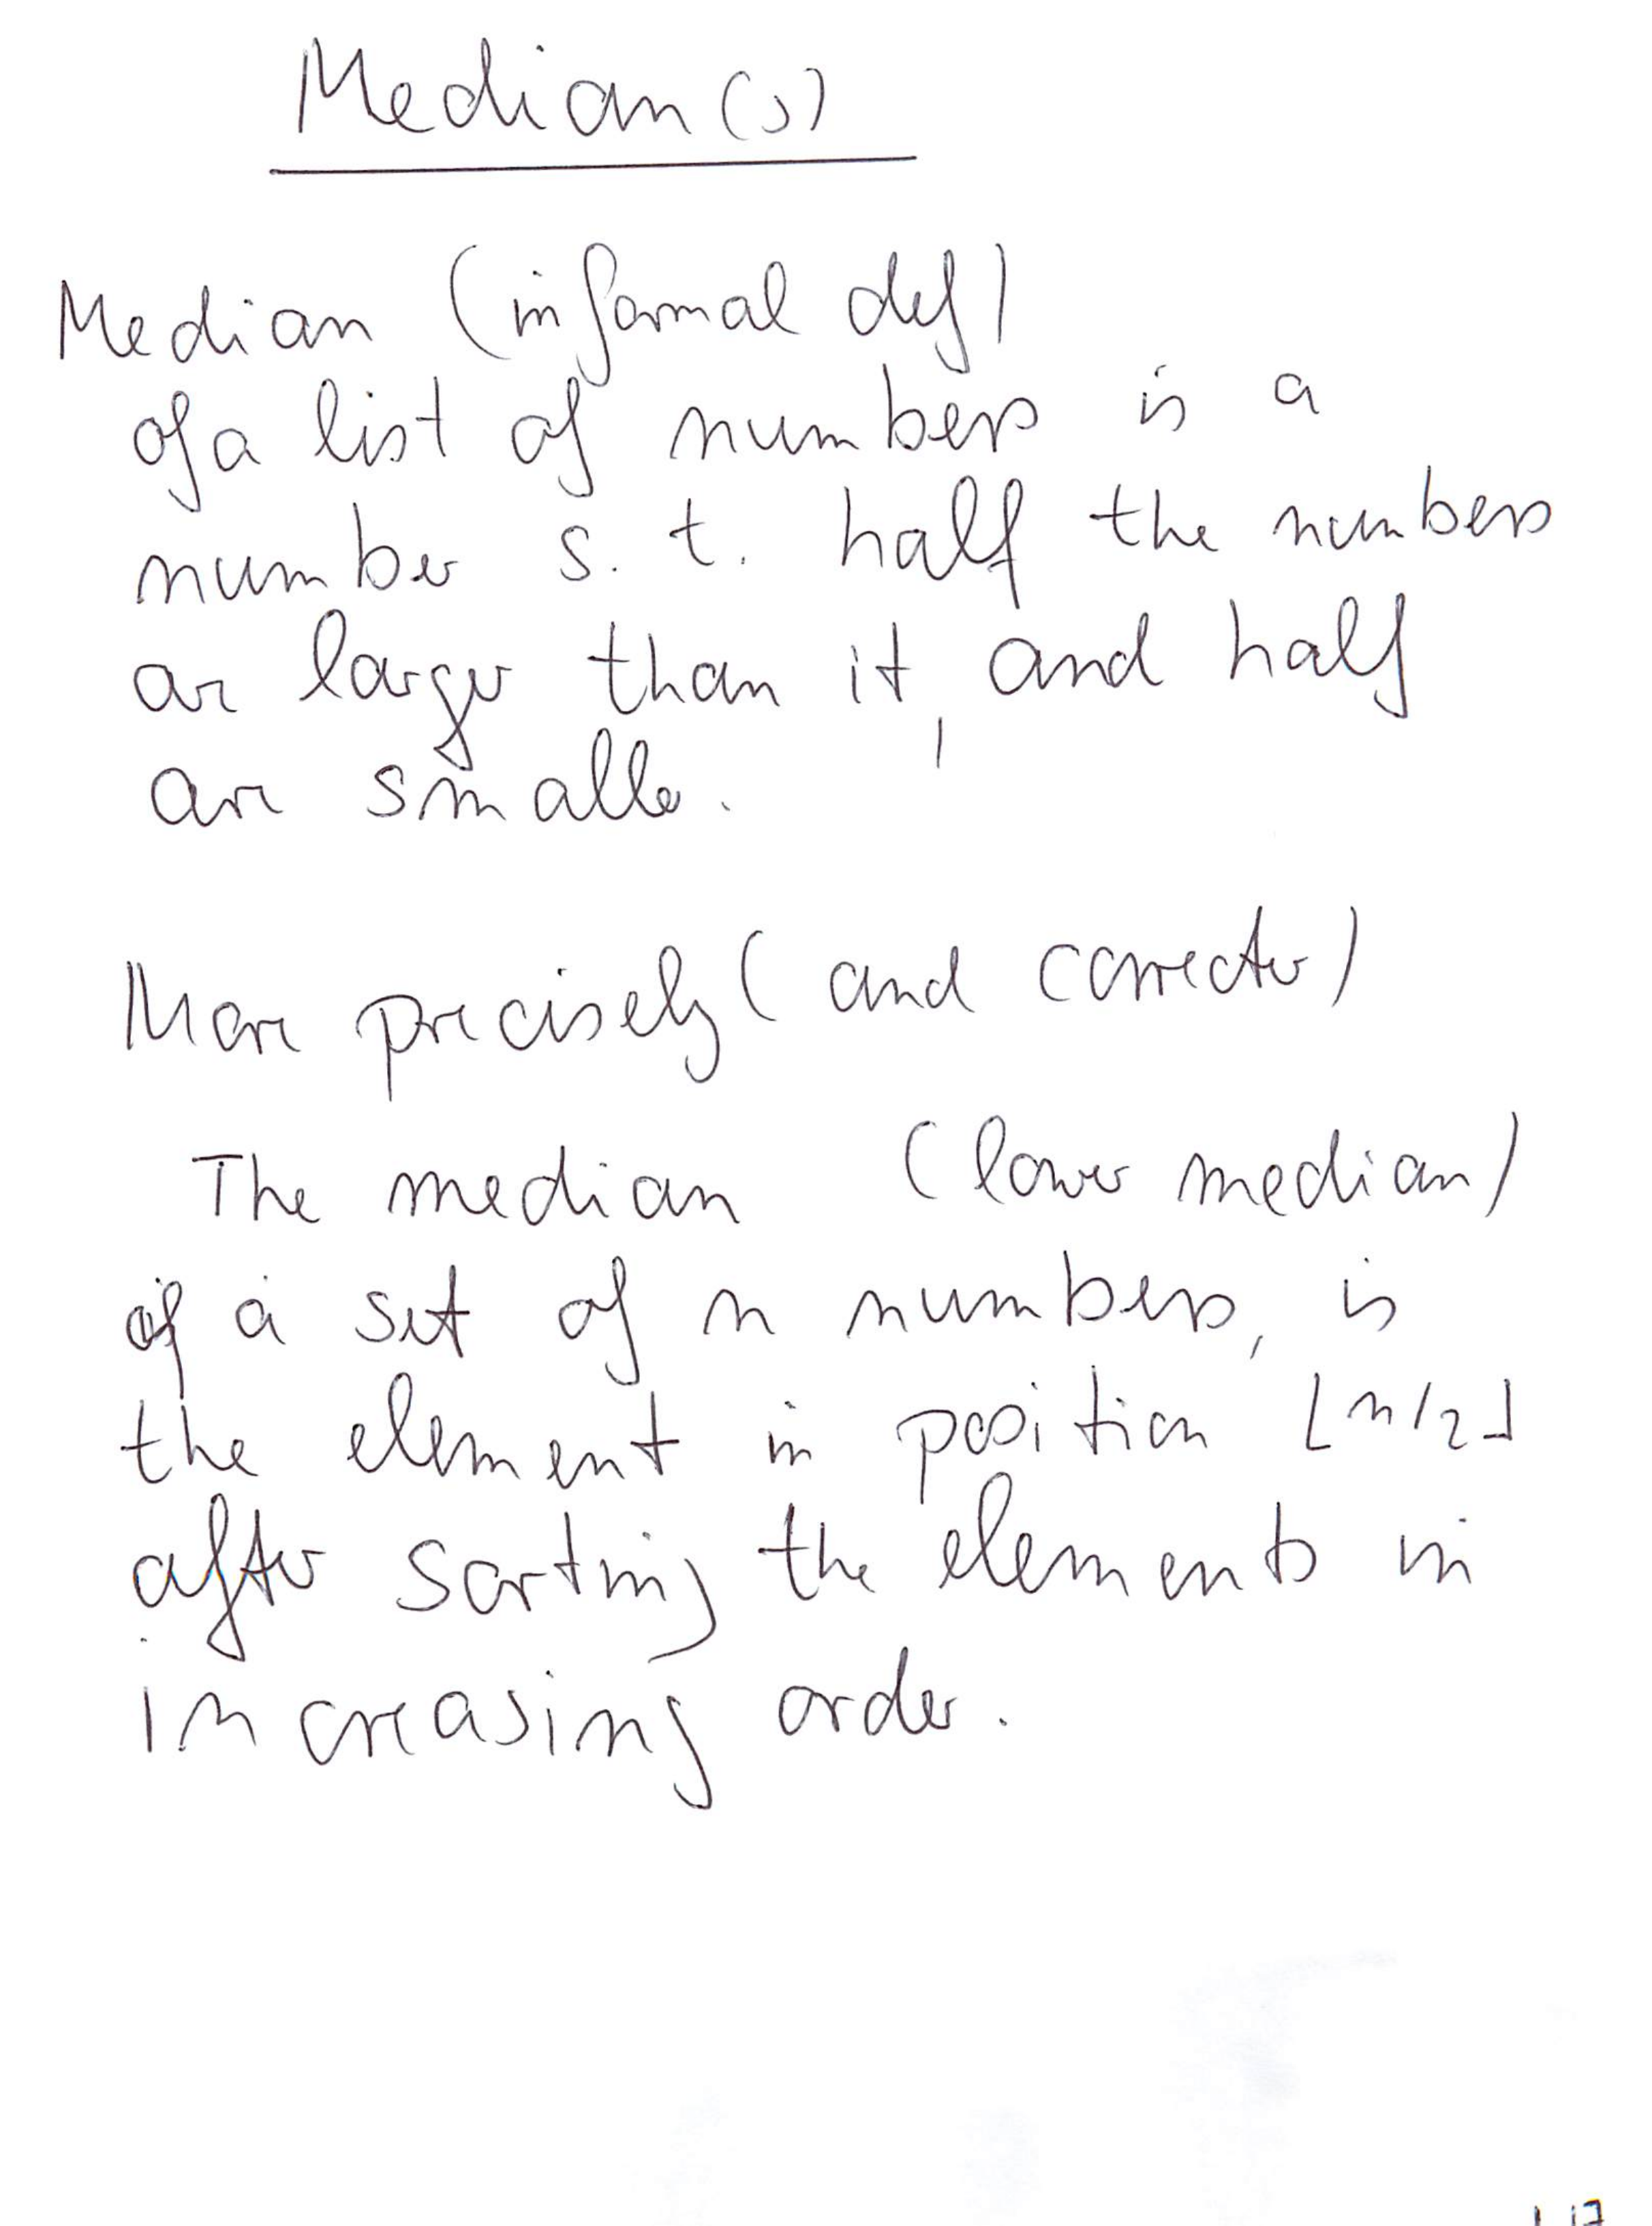 Median(s)
Median (informal def)
of a list of numbers is a
number s.t. half the numbers
are larger than it, and half
are smaller.
More precisely (and correcter)
The median (lower median)
of a set of n numbers, is
the element in position ⌊n/2⌋
after sorting the elements in
increasing order.